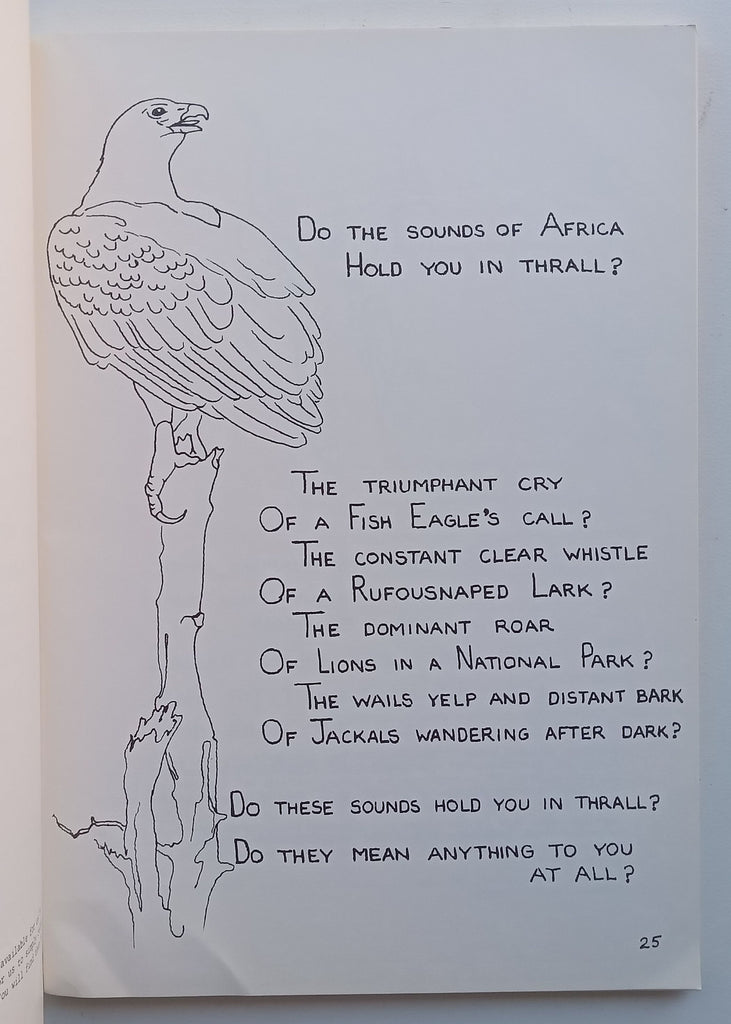 Do the sounds of Africa
Hold you in thrall?
The triumphant cry
Of a Fish Eagle's call?
The constant clear whistle
Of a Rufousnaped Lark?
The dominant roar
Of Lions in a National Park?
The wails yelp and distant bark
Of Jackals wandering after dark?
Do these sounds hold you in thrall?
Do they mean anything to you
at all?
25
available
us to
you will